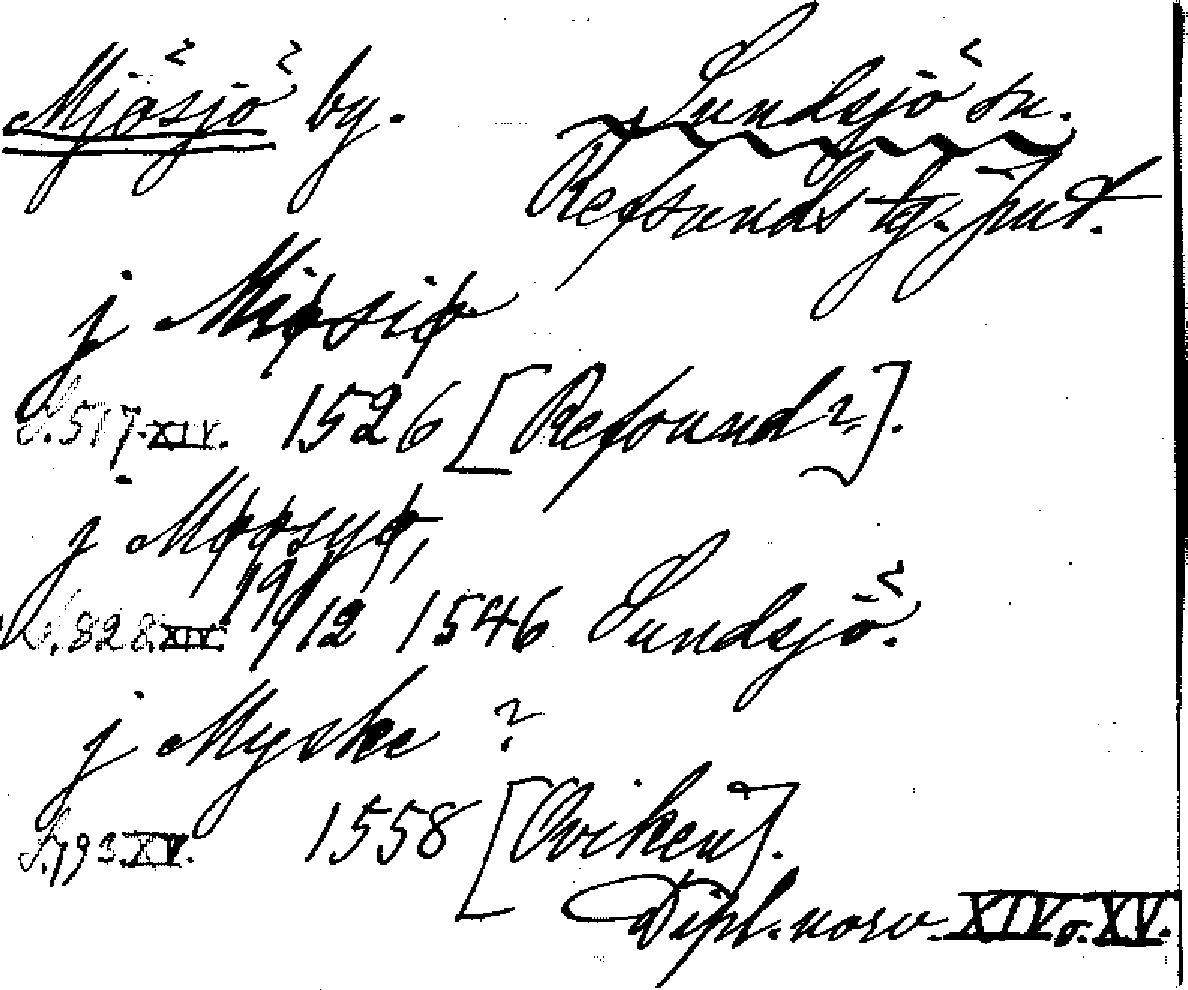 Mjösjö by. Sundsjö sn.
Refsunds tg. Jmt.
j Miøsiø
S. 517. XIV. 1526 [Refsund?].
j Møøsyø,
S. 828. XIV. 19/12 1546 Sundsjö.
j Myske ?
S. 793 XV. 1558 [Oviken].
Dipl. norv. XIV o. XV.